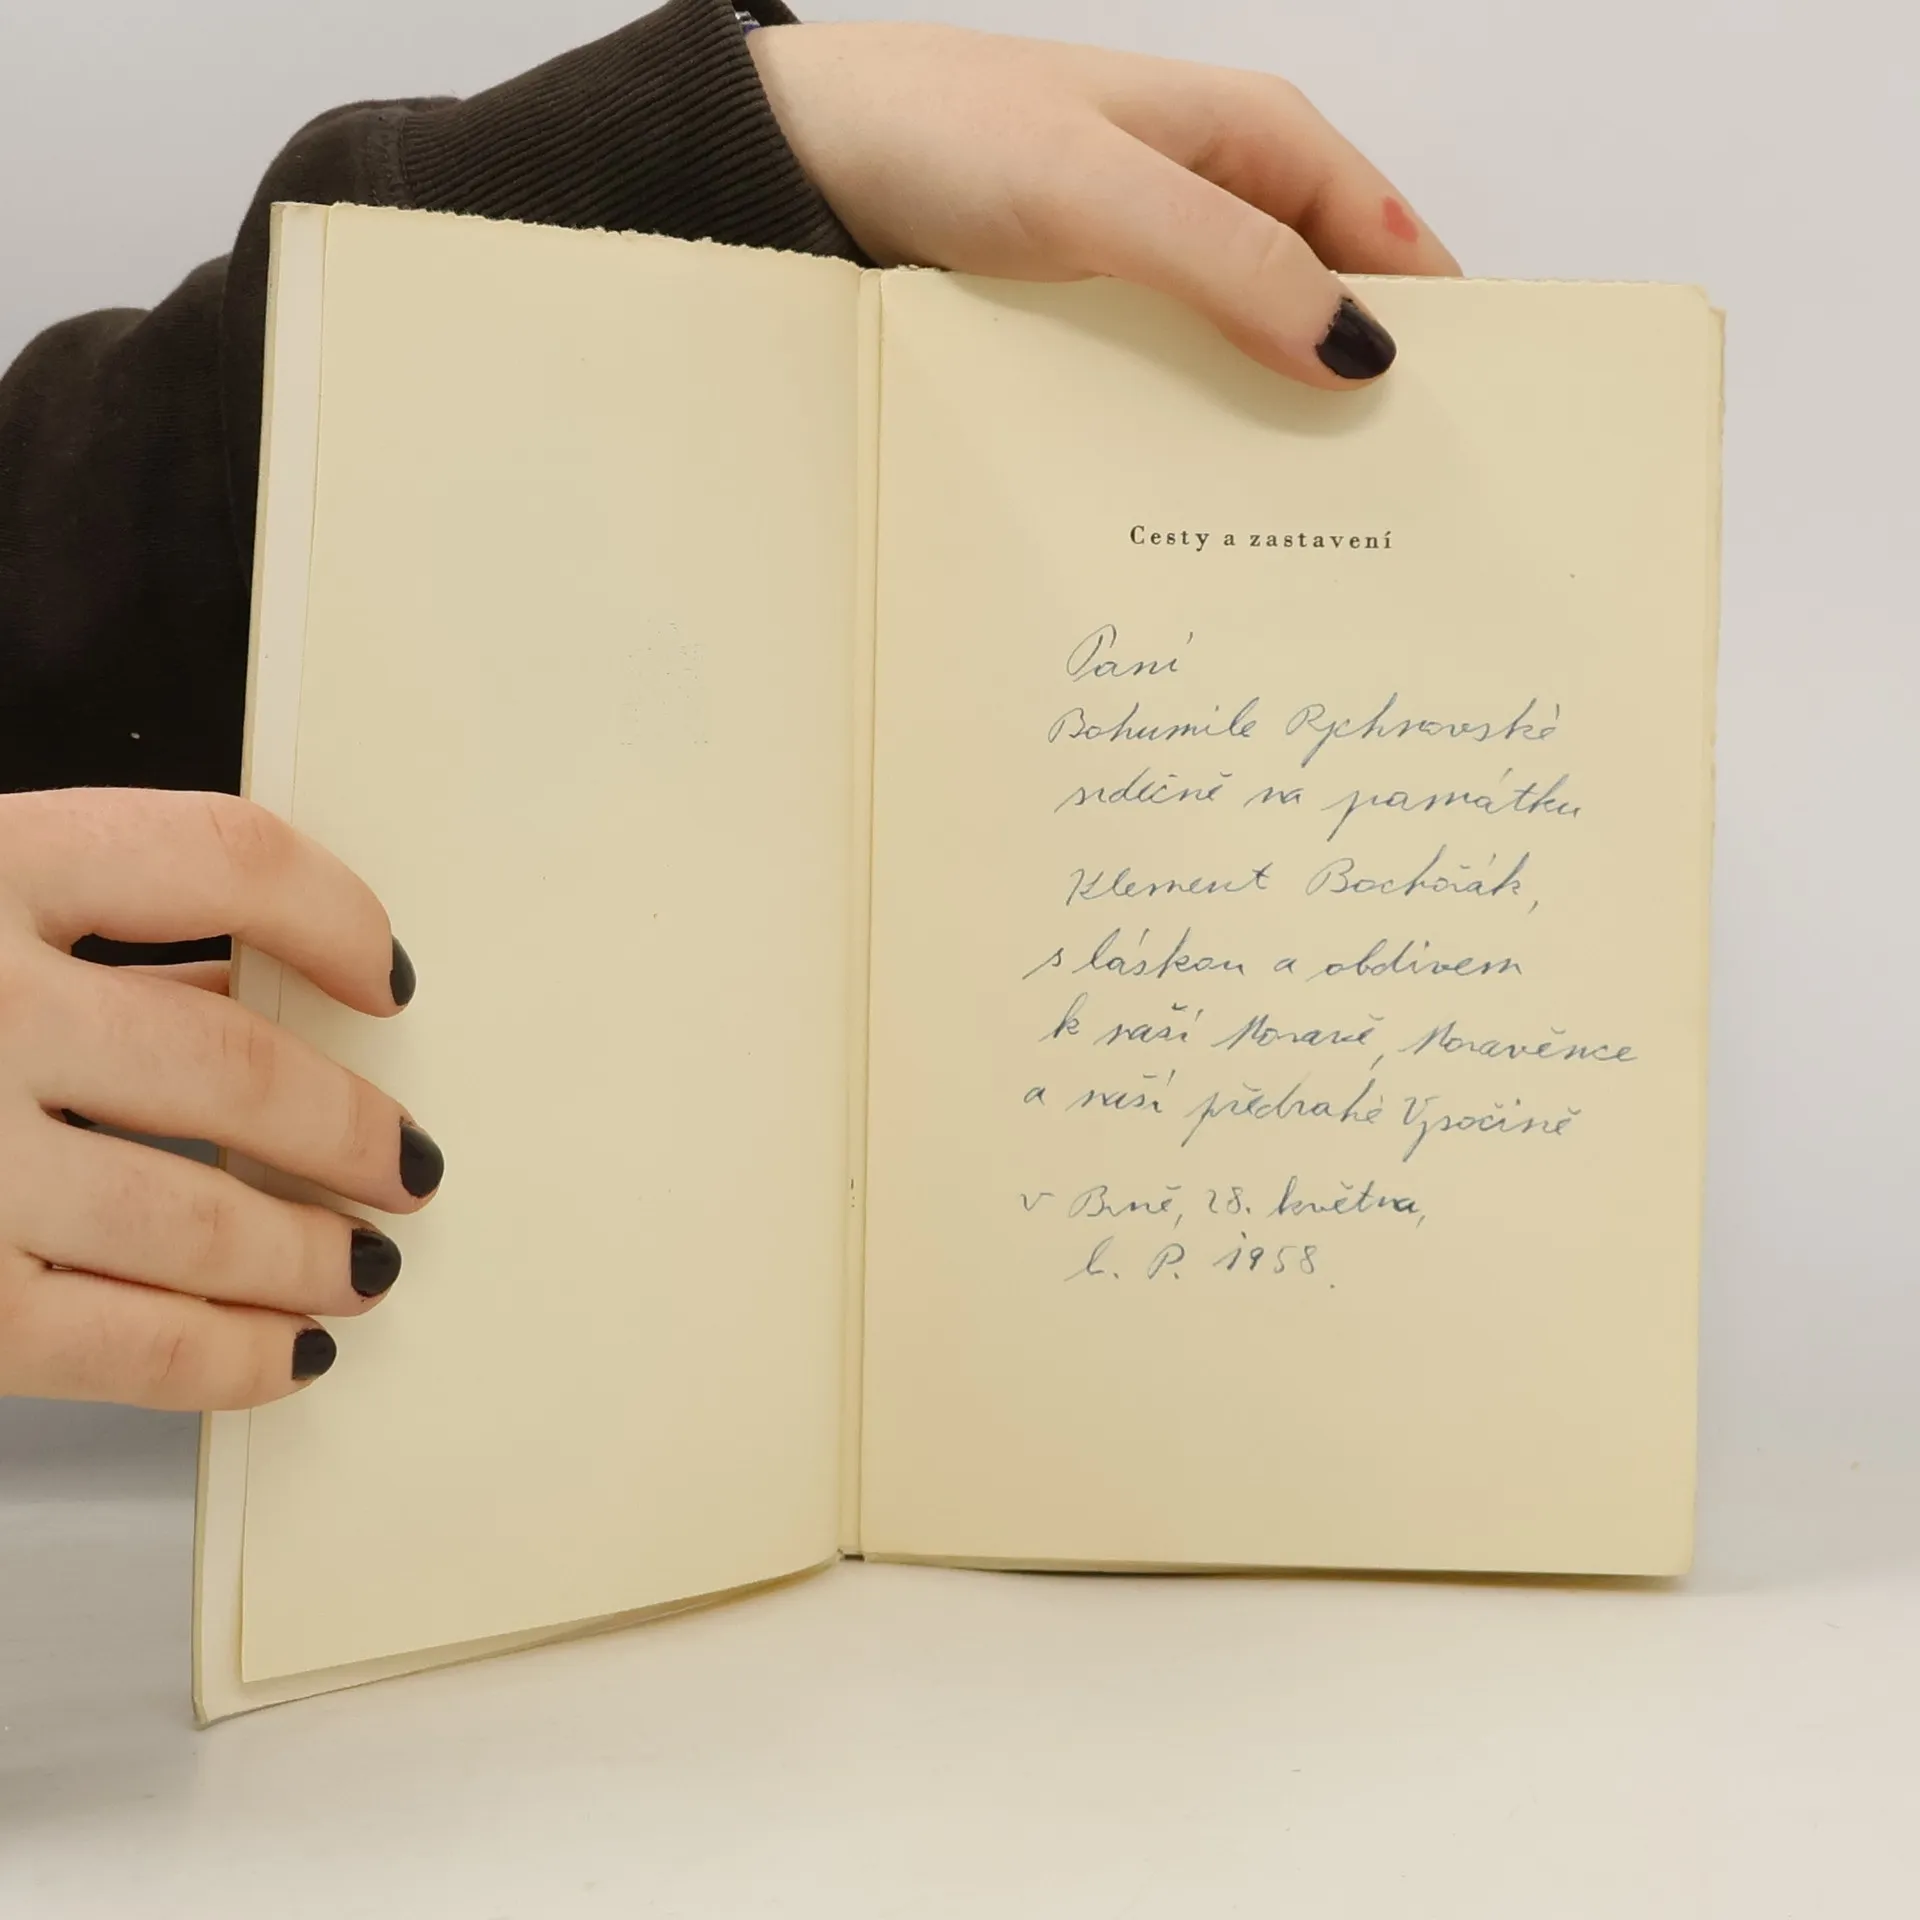 Cesty a zastavení
Paní
Bohumile Rychnovské
srdečně na památku
Klement Bochořák,
s láskou a obdivem
k naší Moravě, Moravěnce
a naší předrahé Vysočině
v Brně, 28. května,
l. P. 1958.